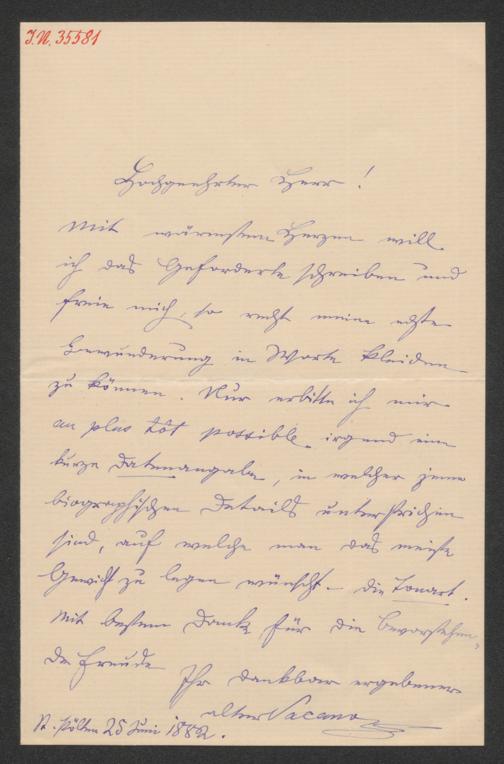 J.N. 35581
Hochgeehrter Herr!
Mit wärmstem Herzen will
ich das Geforderte schreiben und
freue mich, so recht meine echte
Bewunderung in Worte kleiden
zu können. Nur erbitte ich mir
au plus tôt possible irgend eine
kurze Datenangabe, in welcher jene
biographischen Details unterstrichen
sind, auf welche man das meiste
Gewicht zu legen wünscht – die Tonart.
Mit bestem Dank für die bevorstehen-
de Freude
Ihr dankbar ergebener
alter Vacano
St. Pölten 25 Juni 1882.